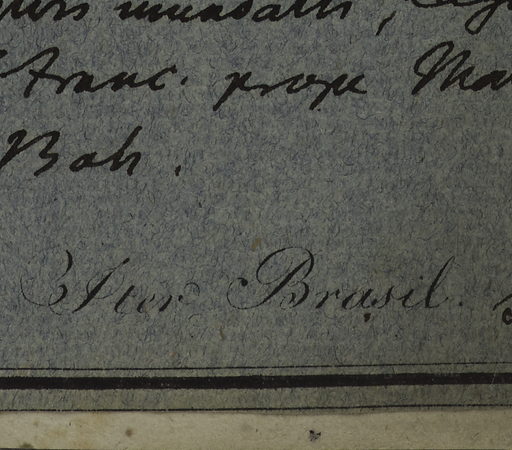 inundatis,
Franc. prope
Bah.
Iter Brasil.